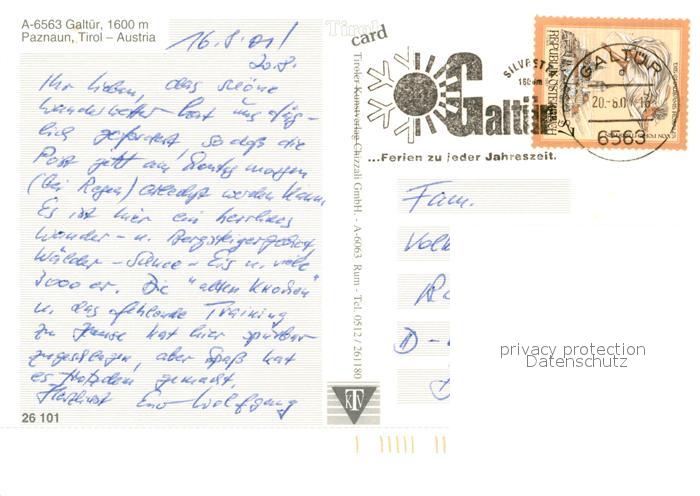 A-6563 Galtür, 1600 m
Paznaun, Tirol – Austria
16.8.01 /
20.8.
Ihr Lieben, das schöne
Wanderwetter hat uns täg-
lich gefordert, so daß die
Post jetzt am Sonntag morgen
(bei Regen) erledigt werden kann.
Es ist hier ein herrliches
Wander- u. Bergsteigergebiet,
Wälder - Schnee - Eis u. viele
3000 er. Die "alten Knochen"
u. das fehlende Training
zu Hause hat hier spürbar
zugeschlagen, aber Spaß hat
es trotzdem gemacht.
Herzlichst Euer Wolfgang
26 101
Tirol
card
Tiroler Kunstverlag Chizzali GmbH. - A-6063 Rum - Tel. 0512 / 261180
KTV
SILVRETTA
1600m
Galtür
...Ferien zu jeder Jahreszeit.
GALTÜR
20.-8.0
6563
REPUBLIK ÖSTERREICH
Fam.
Volk
D-
privacy protection
Datenschutz